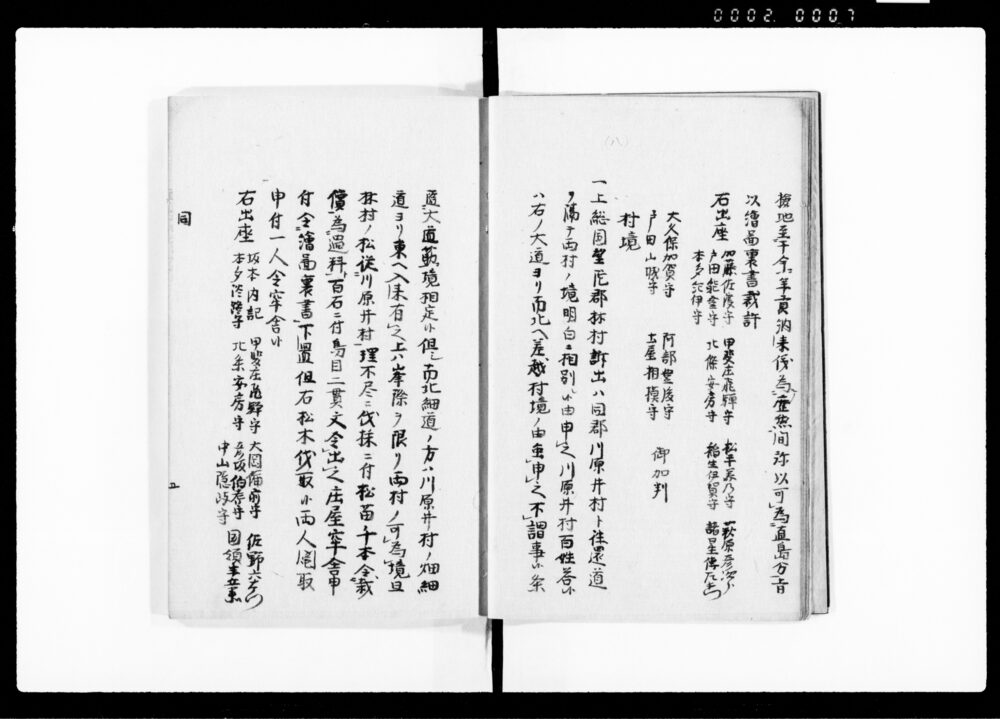 0002 0007
(八)
検地至于今年貢納来伐為無間弥以可為直島方旨
以繪圖裏書裁許
右出座 加藤佐渡守 甲斐庄飛騨守 松平 乃守 萩原彦次
戸田能登守 北條安房守 稲生伊賀守 諸星傳左
本多紀伊守
大久保加賀守 阿部豊後守
戸田山城守 土屋相模守 御加判
村境
一上総国望陀郡林村訴出ハ同郡川原井村ト往還道
ヲ隔テ両村ノ境明白ニ相別小由申之川原井村百姓答小
ハ右ノ大道ヨリ西北ヘ差越村境ノ由申之不謂事小条
道大道 境相定小但西北細道ノ方ハ川原井村ノ畑細
道ヨリ東ヘ入来有之上ハ峯際ヲ限リ両村ノ可為境且
林村ノ松従川原井村理不尽ニ伐採ニ付松苗千本令裁
償為過料百石ニ付鳥目二貫文令出之庄屋牢舎申
付令繪圖裏書下置但右松木伐取小両人 取
申付一人令牢舎小
右出座 坂本内記 甲斐庄飛騨守 大岡備前守 佐野六
本多淡路守 北条安房守 彦坂伯耆守 国領半
中山隠岐守
同
五